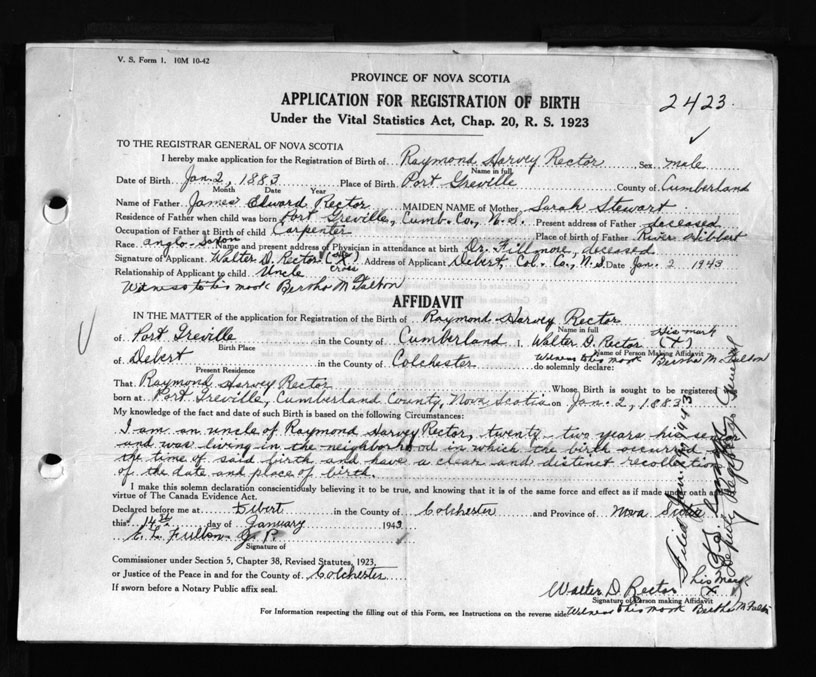 V. S. Form 1. 10M 10-42
PROVINCE OF NOVA SCOTIA
APPLICATION FOR REGISTRATION OF BIRTH
2423.
Under the Vital Statistics Act, Chap. 20, R. S. 1923
TO THE REGISTRAR GENERAL OF NOVA SCOTIA
I hereby make application for the Registration of Birth of Raymond Harvey Rector Sex male
Name in full
Date of Birth Jan. 2, 1883 Place of Birth Port Greville County of Cumberland
Month Date Year
Name of Father James Edward Rector MAIDEN NAME of Mother Sarah Stewart
Residence of Father when child was born Port Greville, Cumb. Co., N. S. Present address of Father deceased
Occupation of Father at Birth of child Carpenter Place of birth of Father River Hibbert
Race anglo-Saxon Name and present address of Physician in attendance at birth Dr. Fillmore, deceased
Signature of Applicant Walter D. Rector (X) Address of Applicant Debert, Col. Co., N.S. Date Jan. 2 1943
cross
Relationship of Applicant to child Uncle
Witness to his mark Bertha M Fulton
AFFIDAVIT
IN THE MATTER of the application for Registration of the Birth of Raymond Harvey Rector
Name in full His mark
of Port Greville in the County of Cumberland I, Walter D. Rector (X)
Birth Place Name of Person Making Affidavit
Witness to his mark Bertha M. Fulton
of Debert in the County of Colchester do solemnly declare:
Present Residence
That Raymond Harvey Rector Whose Birth is sought to be registered
born at Port Greville, Cumberland County, Nova Scotia on Jan. 2, 1883
My knowledge of the fact and date of such Birth is based on the following Circumstances:
I am an uncle of Raymond Harvey Rector, twenty-two years his
and was living in the neighborhood in which the birth occurred
the time of said birth and have a clear and distinct recollection
of the date and place of birth.
I make this solemn declaration conscientiously believing it to be true, and knowing that it is of the same force and effect as if made under oath and
virtue of The Canada Evidence Act.
Declared before me at Debert in the County of Colchester and Province of Nova Scotia
this 14th day of January 1943
C. L. Fulton J. P.
Signature of
Commissioner under Section 5, Chapter 38, Revised Statutes, 1923,
or Justice of the Peace in and for the County of Colchester
If sworn before a Notary Public affix seal.
Walter D. Rector his mark (X)
Signature of Person making Affidavit
Witness to his mark Bertha M Fulton
For Information respecting the filling out of this Form, see Instructions on the reverse side.
Filed 1943
Deputy Registrar General